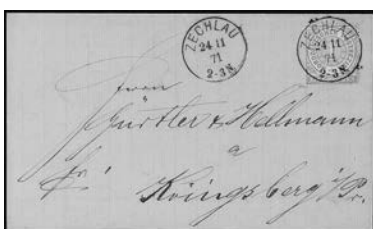 ZECHLAU
24 11
71
2-3N.
ZECHLAU
24 11
71
2-3N.
Herrn
Gürtler & Hellmann
a
fr.
Königsberg i/Pr.